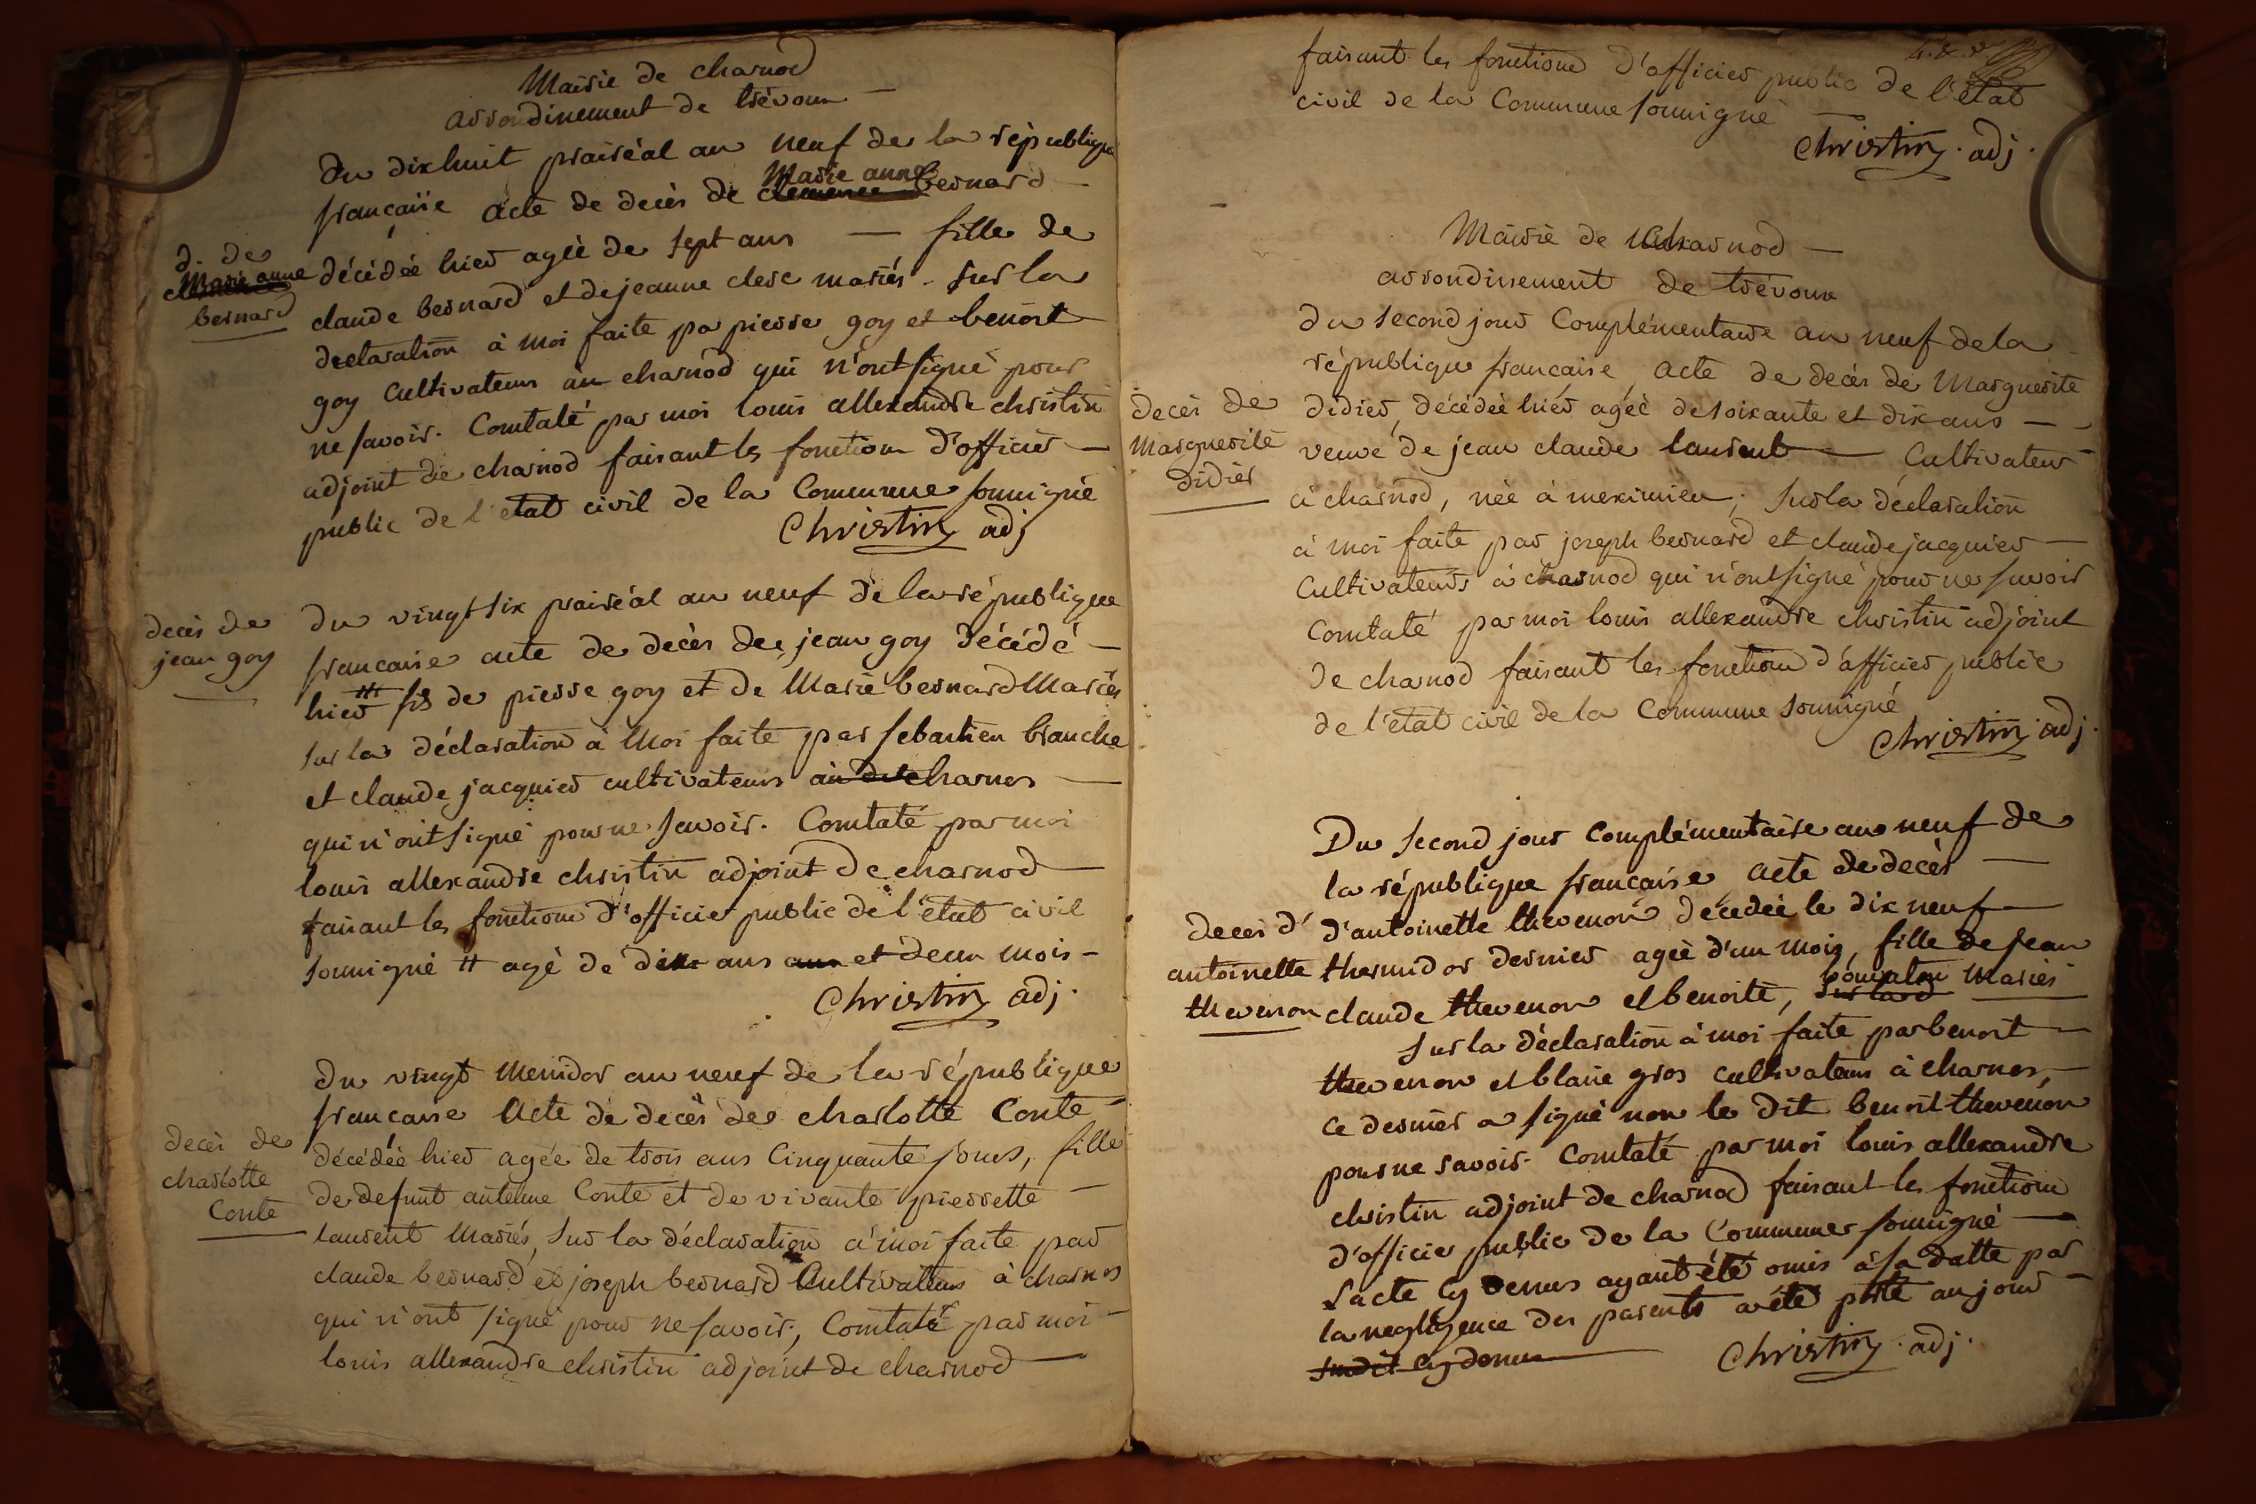 Mairie de charnod
arrondinement de trévoux
du dixhuit prairéal an neuf de la république
française acte de decès de clemence Marie anne bernard
d. de
clemence Marie anne
bernard
décédée hier agée de sept ans — fille de
claude bernard et de jeanne clerc mariés. sur la
declaration à moi faite par pierre goy et benoît
goy cultivateurs au charnod qui n'ont signé pour
ne savoir. Constaté par moi louis allexandre christin
adjoint de charnod faisant les fonctions d'officier
public de l'etat civil de la Commune soussigné
Christin adj
decès de
jean goy
du vingt six prairéal an neuf de la république
francaise acte de decès de jean goy décédé
hier ## fils de pierre goy et de Marie bernard Mariés
sur la déclaration à Moi faite par sebastien branche
et claude jacquier cultivateurs à charnos
qui n'ont signé pour ne savoir. Constaté par moi
louis allexandre christin adjoint de charnod
faisant les fonctions d'officier public de l'état civil
soussigné ## agé de dix ans ans et deux mois
Christin adj.
du vingt Messidor an neuf de la république
francaise Acte de decès de charlotte Conte
decès de
charlotte
Conte
décédée hier agée de trois ans Cinquante jours, fille
de defunt antelme Conte et de vivante pierrette
laurent Mariés, sur la déclaration à moi faite par
claude bernard et joseph bernard Cultivateurs à charnos
qui n'ont signé pour ne savoir, Constaté par moi
louis allexandre christin adjoint de charnod
faisant les fonctions d'officier public de l'état
civil de la Commune soussigné
Christin. adj.
Mairie de charnod
arrondinement de trévoux
du second jour Complémentaire an neuf de la
république francaise, acte de decès de Marguerite
decès de
Marguerite
didier
didier, décédée hier agée de soixante et dix ans
veuve de jean claude laurent — Cultivateur
à charnod, née à meximieu, sur la déclaration
à moi faite par joseph bernard et claude jacquier
Cultivateurs à charnod qui n'ont signé pour ne savoir
Constaté par moi louis allexandre christin adjoint
de charnod faisant les fonctions d'officier public
de l'etat civil de la Commune soussigné
Christin adj.
Du second jour Complémentaire an neuf de
la république française acte de decès
decès d'
antoinette
thevenon
d'antoinette thevenon décedée le dix neuf
thermidor dernier agée d'un mois, fille de jean
claude thevenon et benoite, Mariés
sur la déclaration à moi faite par benoit
thevenon et blaise gros cultivateurs à charnos,
ce dernier a signé non le dit benoit thevenon
pour ne savoir. Constaté par moi louis allexandre
christin adjoint de charnod faisant les fonctions
d'officier public de la Commune soussigné
L'acte cy dessus ayant été omis à sa datte par
la negligence des parents a été porté au jour
susdit cy dessus
Christin. adj.